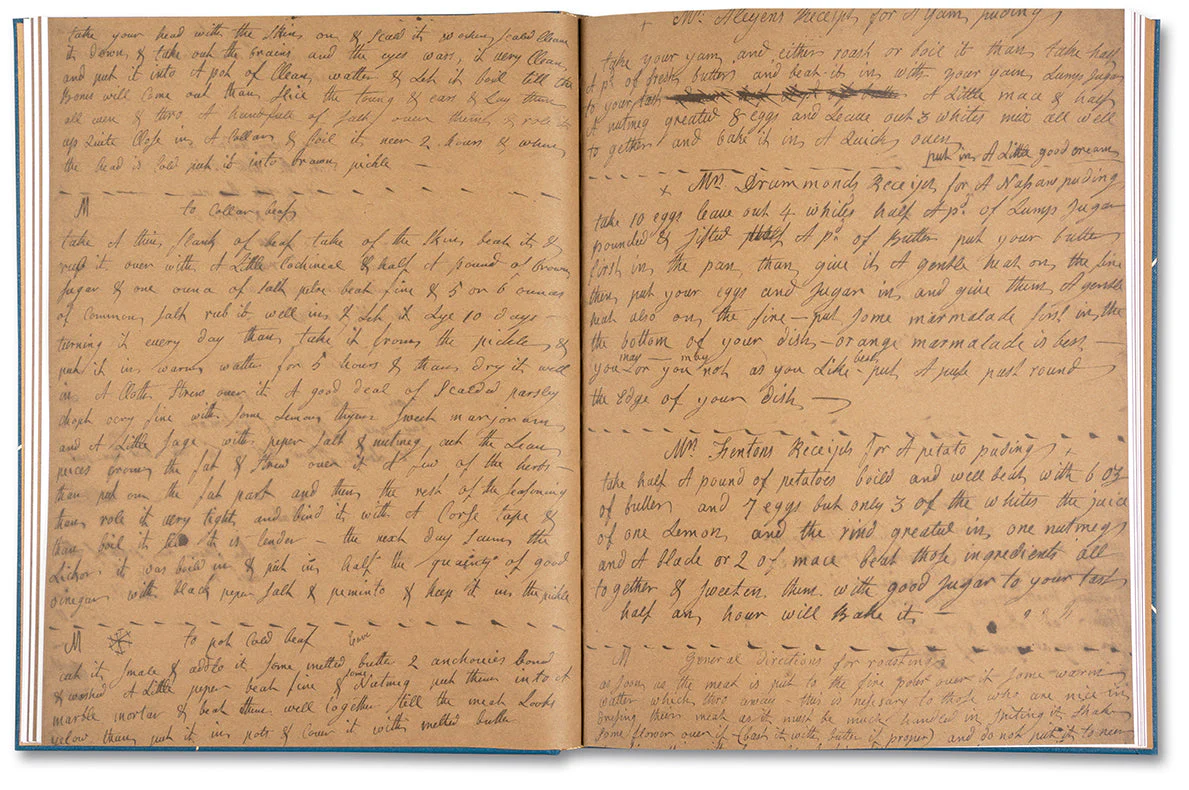 take your head with the Skins on & Scald it washing Scald Cleane
it down, & take out the brains and the eyes wars, it very Clean,
and put it into A pot of Clean, watter & Let it boil till the
Bones will Come out than Slice the toung & ears & Lay them
all over & two A handfull of Salt over them, & role it
up Quite Close in A Collar & boil it neer 2 hours & when
the head is Cold put it into brown pickle —
M to Collar beaf
take A thin flank of beaf take of the Skins beat it &
rub it over with A Little Cochineal & half A pound of brown
Sugar & one ounce of salt petre beat fine & 5 or 6 ounces
of common, Salt rub it well in, & Let it Lye 10 days —
turning it every day than take it from the pickle &
put it in warm watter for 5 hours & than dry it well
in A Cloth Strew over it A good deal of Scalded parsley
chopt very fine with some Lemon thyme Sweet marjoram
and A Little Sage with peper Salt & nutmeg cut the Lean
peices from the fat & Strew over it A few of the herbs —
than put on the fat part and then the rest of the Seasoning
than role it very tight, and bind it with A Corse tape &
than boil it it is tender — the next day the
Lichor it was boild in & put in half the quantity of good
vinegar with black peper Salt & peminto & keep it in the pickle
M to pot Cold beaf
cut it smale & add to it some melted butter 2 anchovies bond
& washed A Little peper beat fine & some Nutmeg put them into A
marble mortar & beat them well together till the meat Looks
yelow than put it in pots & Cover it with melted butter
+ Mrs Aleyens Receipt for A Yam puding
take your yam and either roast or boil it than take half
A pd. of fresh butter and beat it in with your yam Lump Sugar
to your tast A Little mace & half
A nutmeg greated 8 eggs and Leave out 3 whites mix all well
to gether and bake it in A Quick oven
put in A Little good cream
+ Mrs Drummonds Receipt for A Nasaw puding
take 10 eggs leave out 4 whites half A pd. of Lump Sugar
pounded & sifted A pd. of Butter put your butter
first in the pan than give it A gentle heat on the fire
then put your eggs and Sugar in and give them A gentle
heat also on the fire — put some marmalade first in the
the bottom of your dish — orange marmalade is best —
you may — or you may not as you Like best — put A puft past round
the edge of your dish —
Mrs Fentons Receipt for A potato puding +
take half A pound of potatoes boiled and well beat with 6 oz
of butter and 7 eggs but only 3 of the whites the juice
of one Lemon and the rind greated in one nutmeg
and A blade or 2 of mace beat those ingredients all
to gether & sweeten them with good Sugar to your tast
half an hour will Bake it —
M General directions for roasting
as soon as the meat is put to the fire poter over it some warm
watter which thro away — this is nesesary to those who are nice in
dresing their meat as it must be much handled in spiting it Shake
some flower over it (bast it with butter if proper) and do not put it to neer